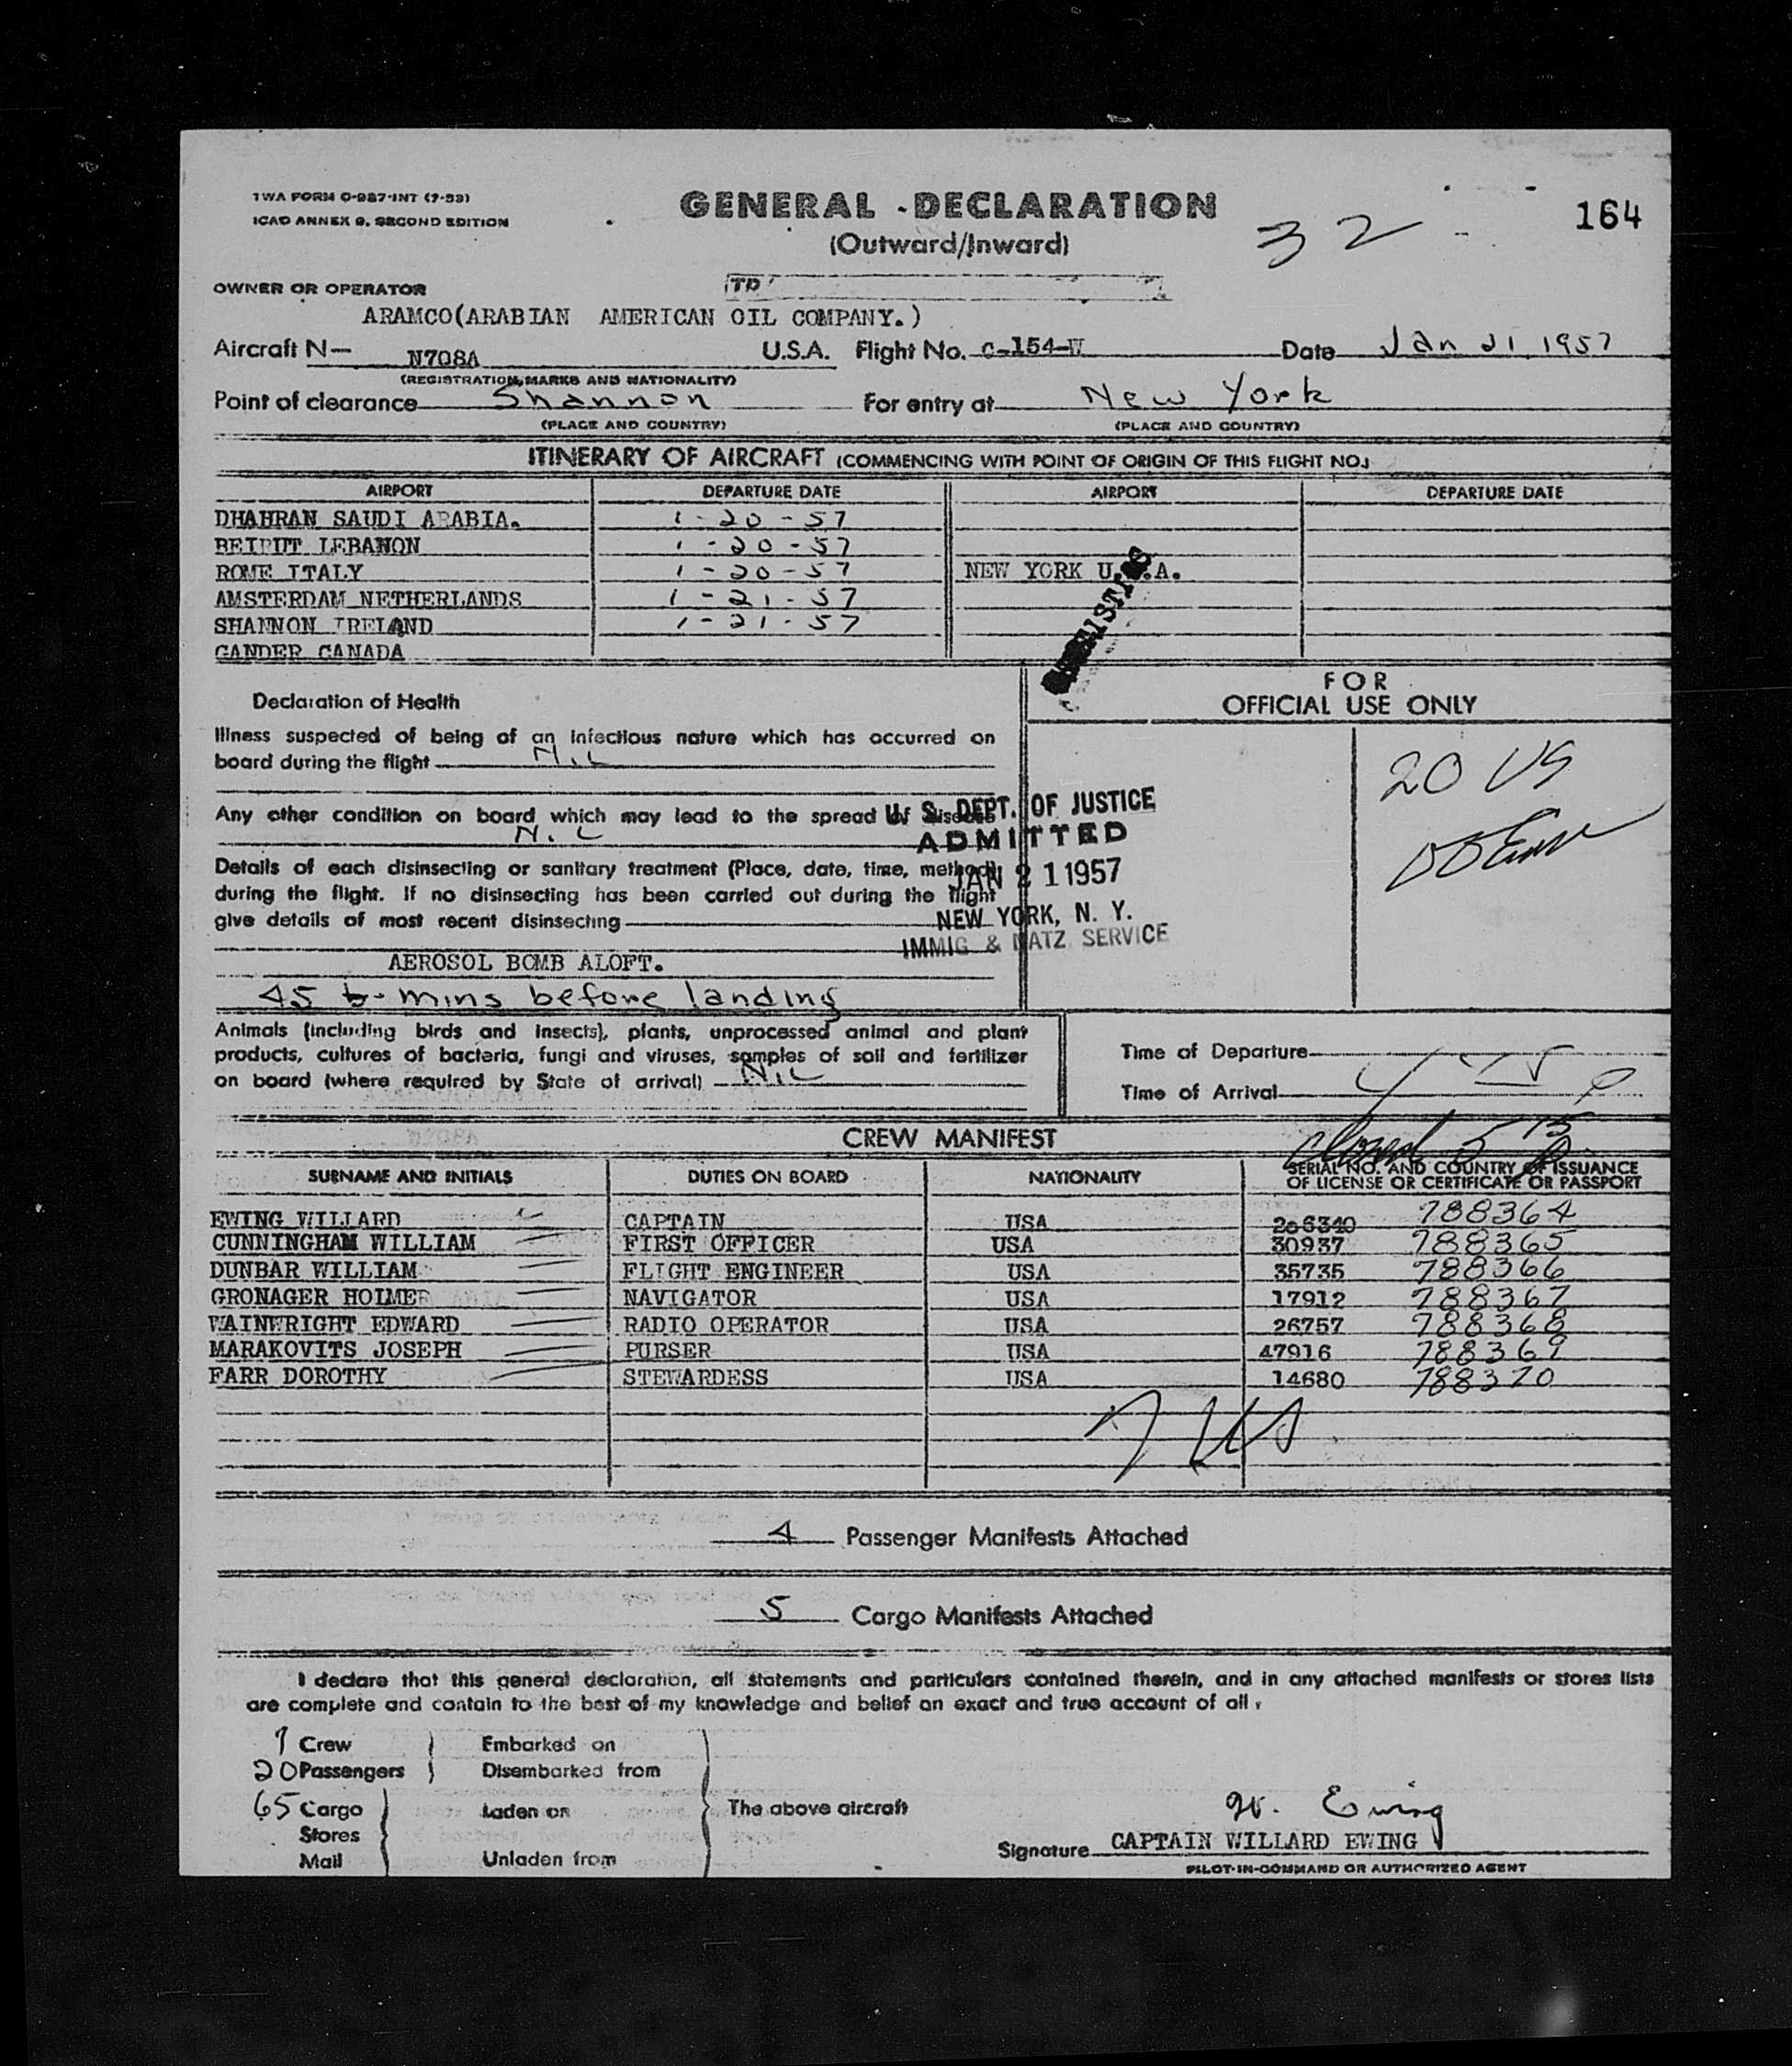 TWA FORM O-987-INT (7-53)
ICAO ANNEX 9, SECOND EDITION
GENERAL DECLARATION
(Outward/Inward)
32
164
OWNER OR OPERATOR
ARAMCO(ARABIAN AMERICAN OIL COMPANY.)
Aircraft N— N708A U.S.A. Flight No. C-154-W Date Jan 21, 1957
(REGISTRATION, MARKS AND NATIONALITY)
Point of clearance Shannon For entry at New York
(PLACE AND COUNTRY) (PLACE AND COUNTRY)
ITINERARY OF AIRCRAFT (COMMENCING WITH POINT OF ORIGIN OF THIS FLIGHT NO.)
AIRPORT DEPARTURE DATE AIRPORT DEPARTURE DATE
DHAHRAN SAUDI ARABIA. 1-20-57
BEIRUT LEBANON 1-20-57
ROME ITALY 1-20-57 NEW YORK U.S.A.
AMSTERDAM NETHERLANDS 1-21-57
SHANNON IRELAND 1-21-57
GANDER CANADA
Declaration of Health
FOR
OFFICIAL USE ONLY
Illness suspected of being of an infectious nature which has occurred on
board during the flight NIL
20 US
Any other condition on board which may lead to the spread of disease
NIL
U. S. DEPT. OF JUSTICE
ADMITTED
JAN 21 1957
NEW YORK, N. Y.
IMMIG & NATZ SERVICE
Details of each disinsecting or sanitary treatment (Place, date, time, method)
during the flight. If no disinsecting has been carried out during the flight
give details of most recent disinsecting
AEROSOL BOMB ALOFT.
45 mins before landing
Animals (including birds and insects), plants, unprocessed animal and plant
products, cultures of bacteria, fungi and viruses, samples of soil and fertilizer
on board (where required by State of arrival) NIL
Time of Departure
Time of Arrival
CREW MANIFEST
SURNAME AND INITIALS DUTIES ON BOARD NATIONALITY SERIAL NO. AND COUNTRY OF ISSUANCE
OF LICENSE OR CERTIFICATE OR PASSPORT
EWING WILLARD CAPTAIN USA 206340 788364
CUNNINGHAM WILLIAM FIRST OFFICER USA 30937 788365
DUNBAR WILLIAM FLIGHT ENGINEER USA 35735 788366
GRONAGER HOLMER NAVIGATOR USA 17912 788367
WAINWRIGHT EDWARD RADIO OPERATOR USA 26757 788368
MARAKOVITS JOSEPH PURSER USA 47916 788369
FARR DOROTHY STEWARDESS USA 14680 788370
7 US
4 Passenger Manifests Attached
5 Cargo Manifests Attached
I declare that this general declaration, all statements and particulars contained therein, and in any attached manifests or stores lists
are complete and contain to the best of my knowledge and belief an exact and true account of all:
7 Crew Embarked on
20 Passengers Disembarked from
65 Cargo Laden on The above aircraft
Stores
Mail Unladen from
W. Ewing
Signature CAPTAIN WILLARD EWING
PILOT-IN-COMMAND OR AUTHORIZED AGENT